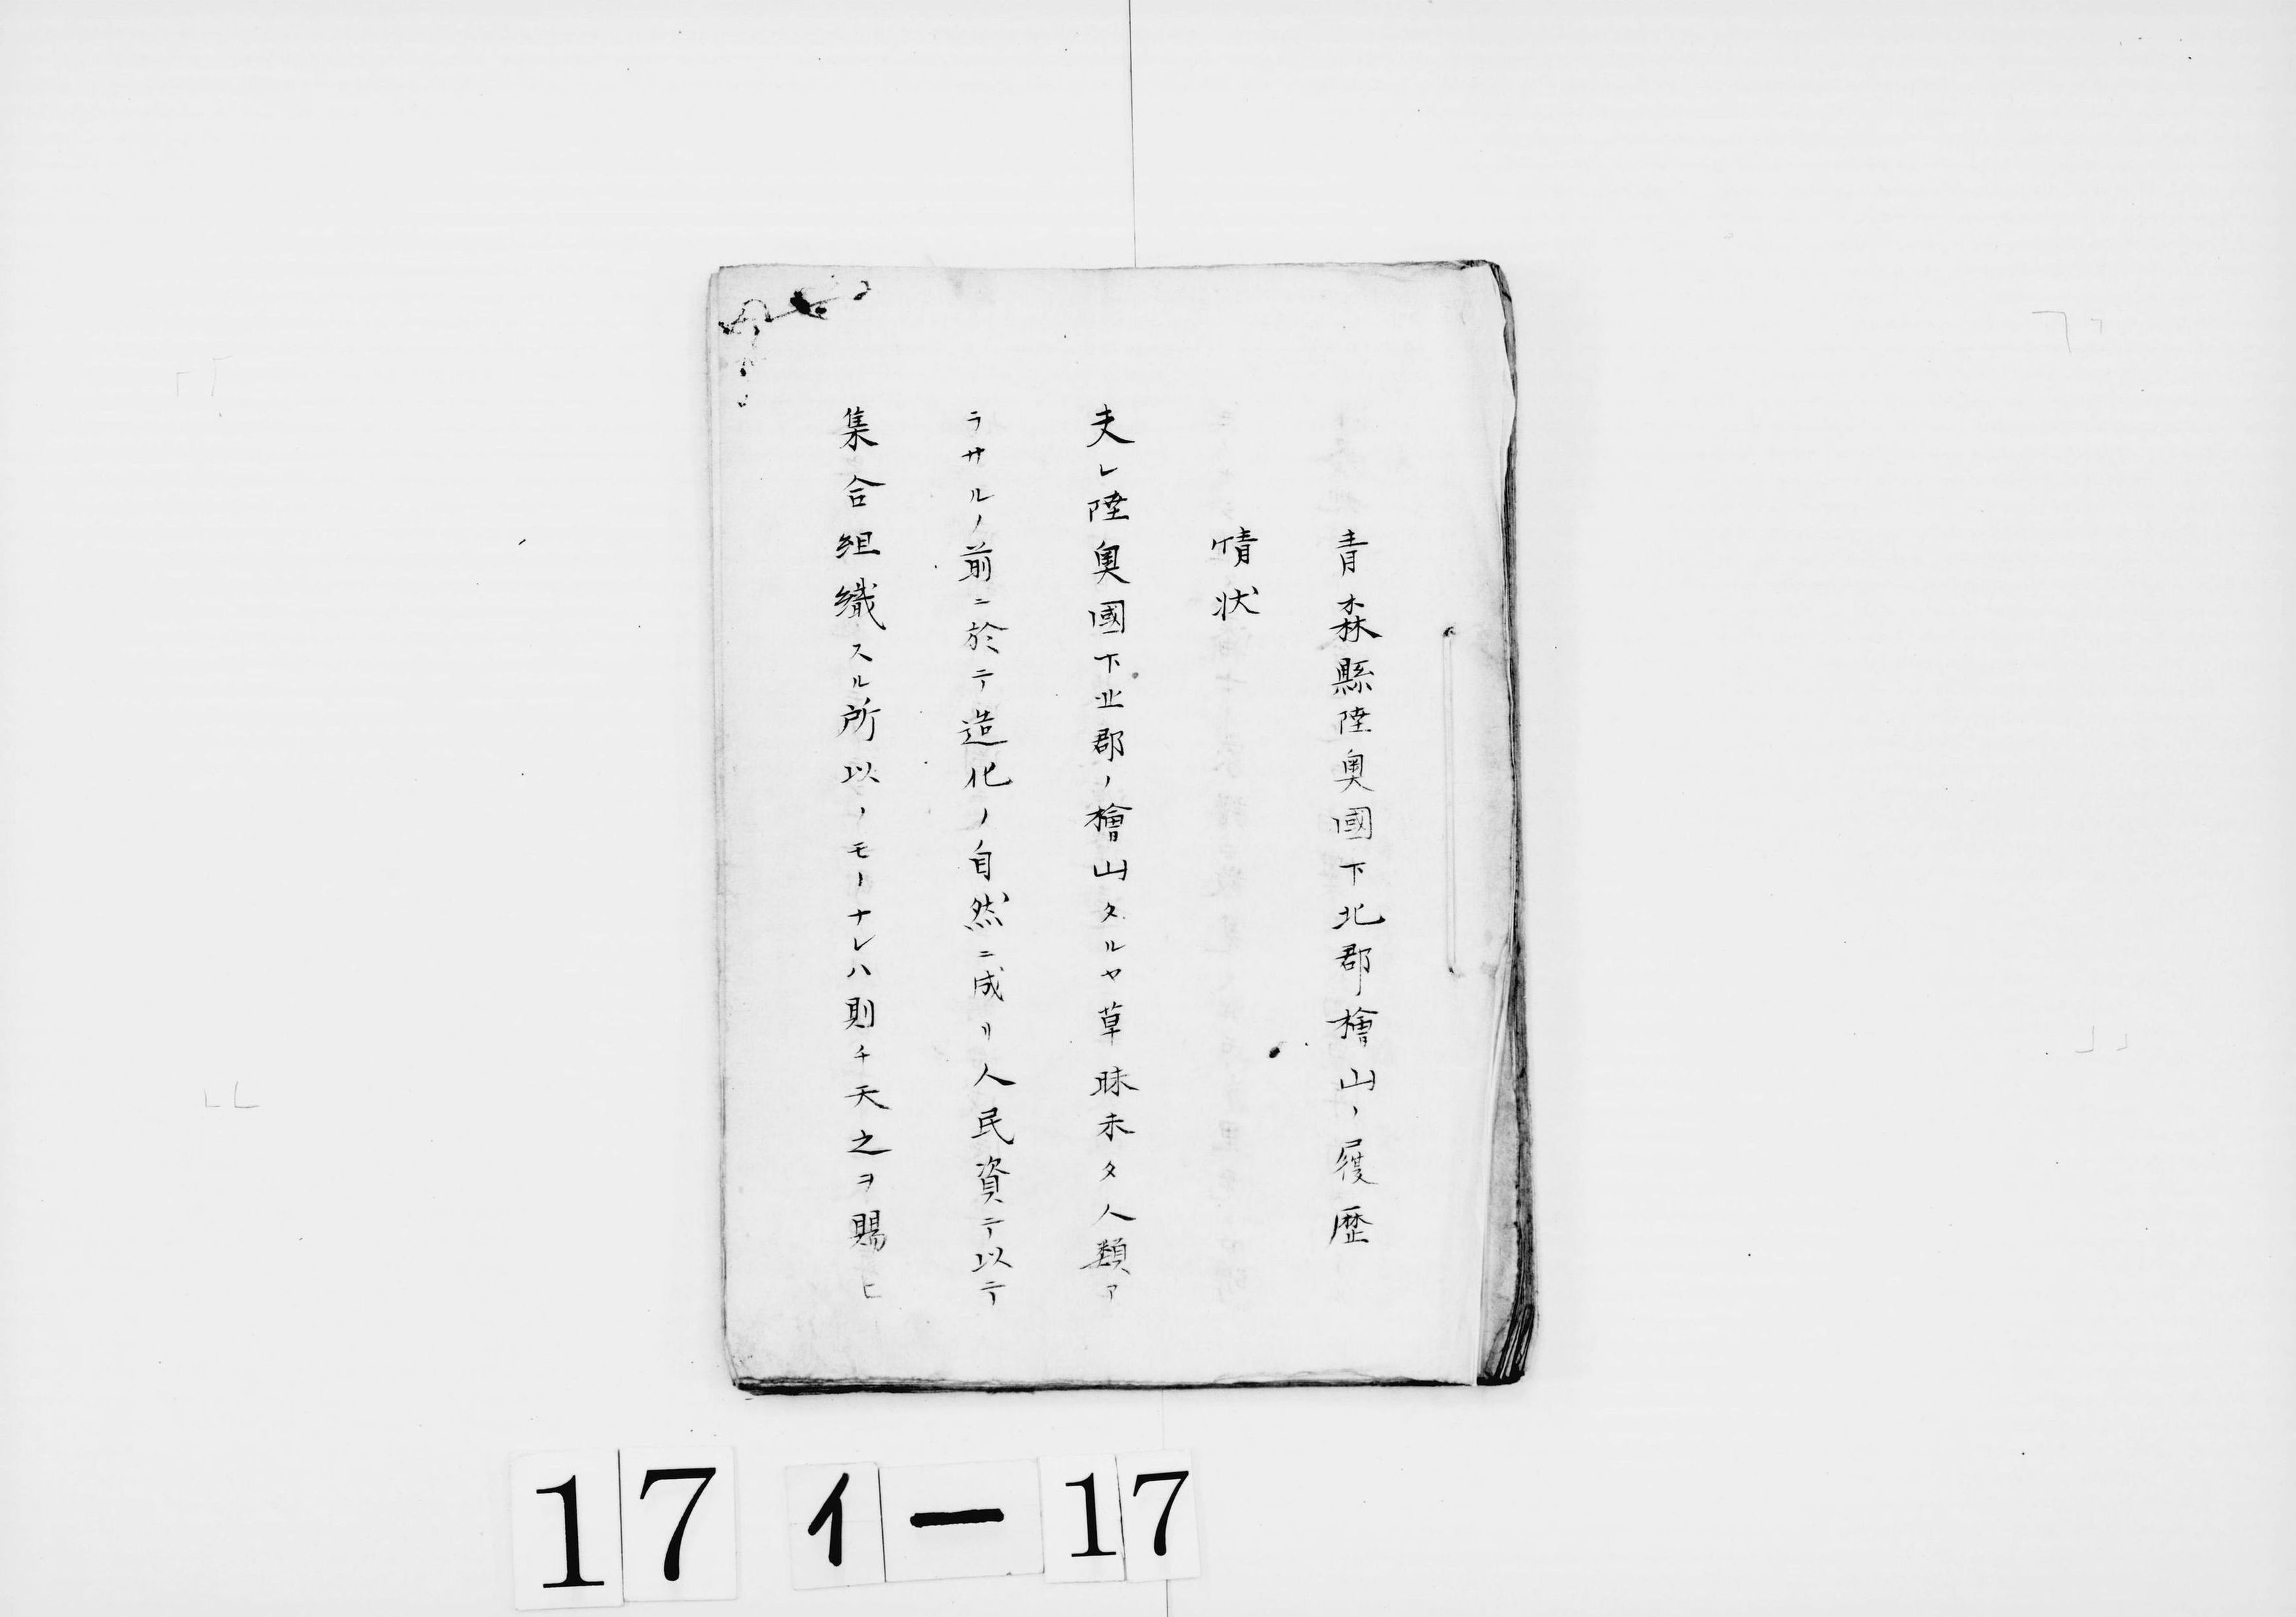 青森縣陸奥國下北郡檜山ノ履歴
情状
夫レ陸奥國下北郡ノ檜山タルヤ草昧未タ人類ア
ラサルノ前ニ於テ造化ノ自然ニ成リ人民資テ以テ
集合組織スル所以ノモノナレハ則チ天之ヲ賜ヒ
17 イー17